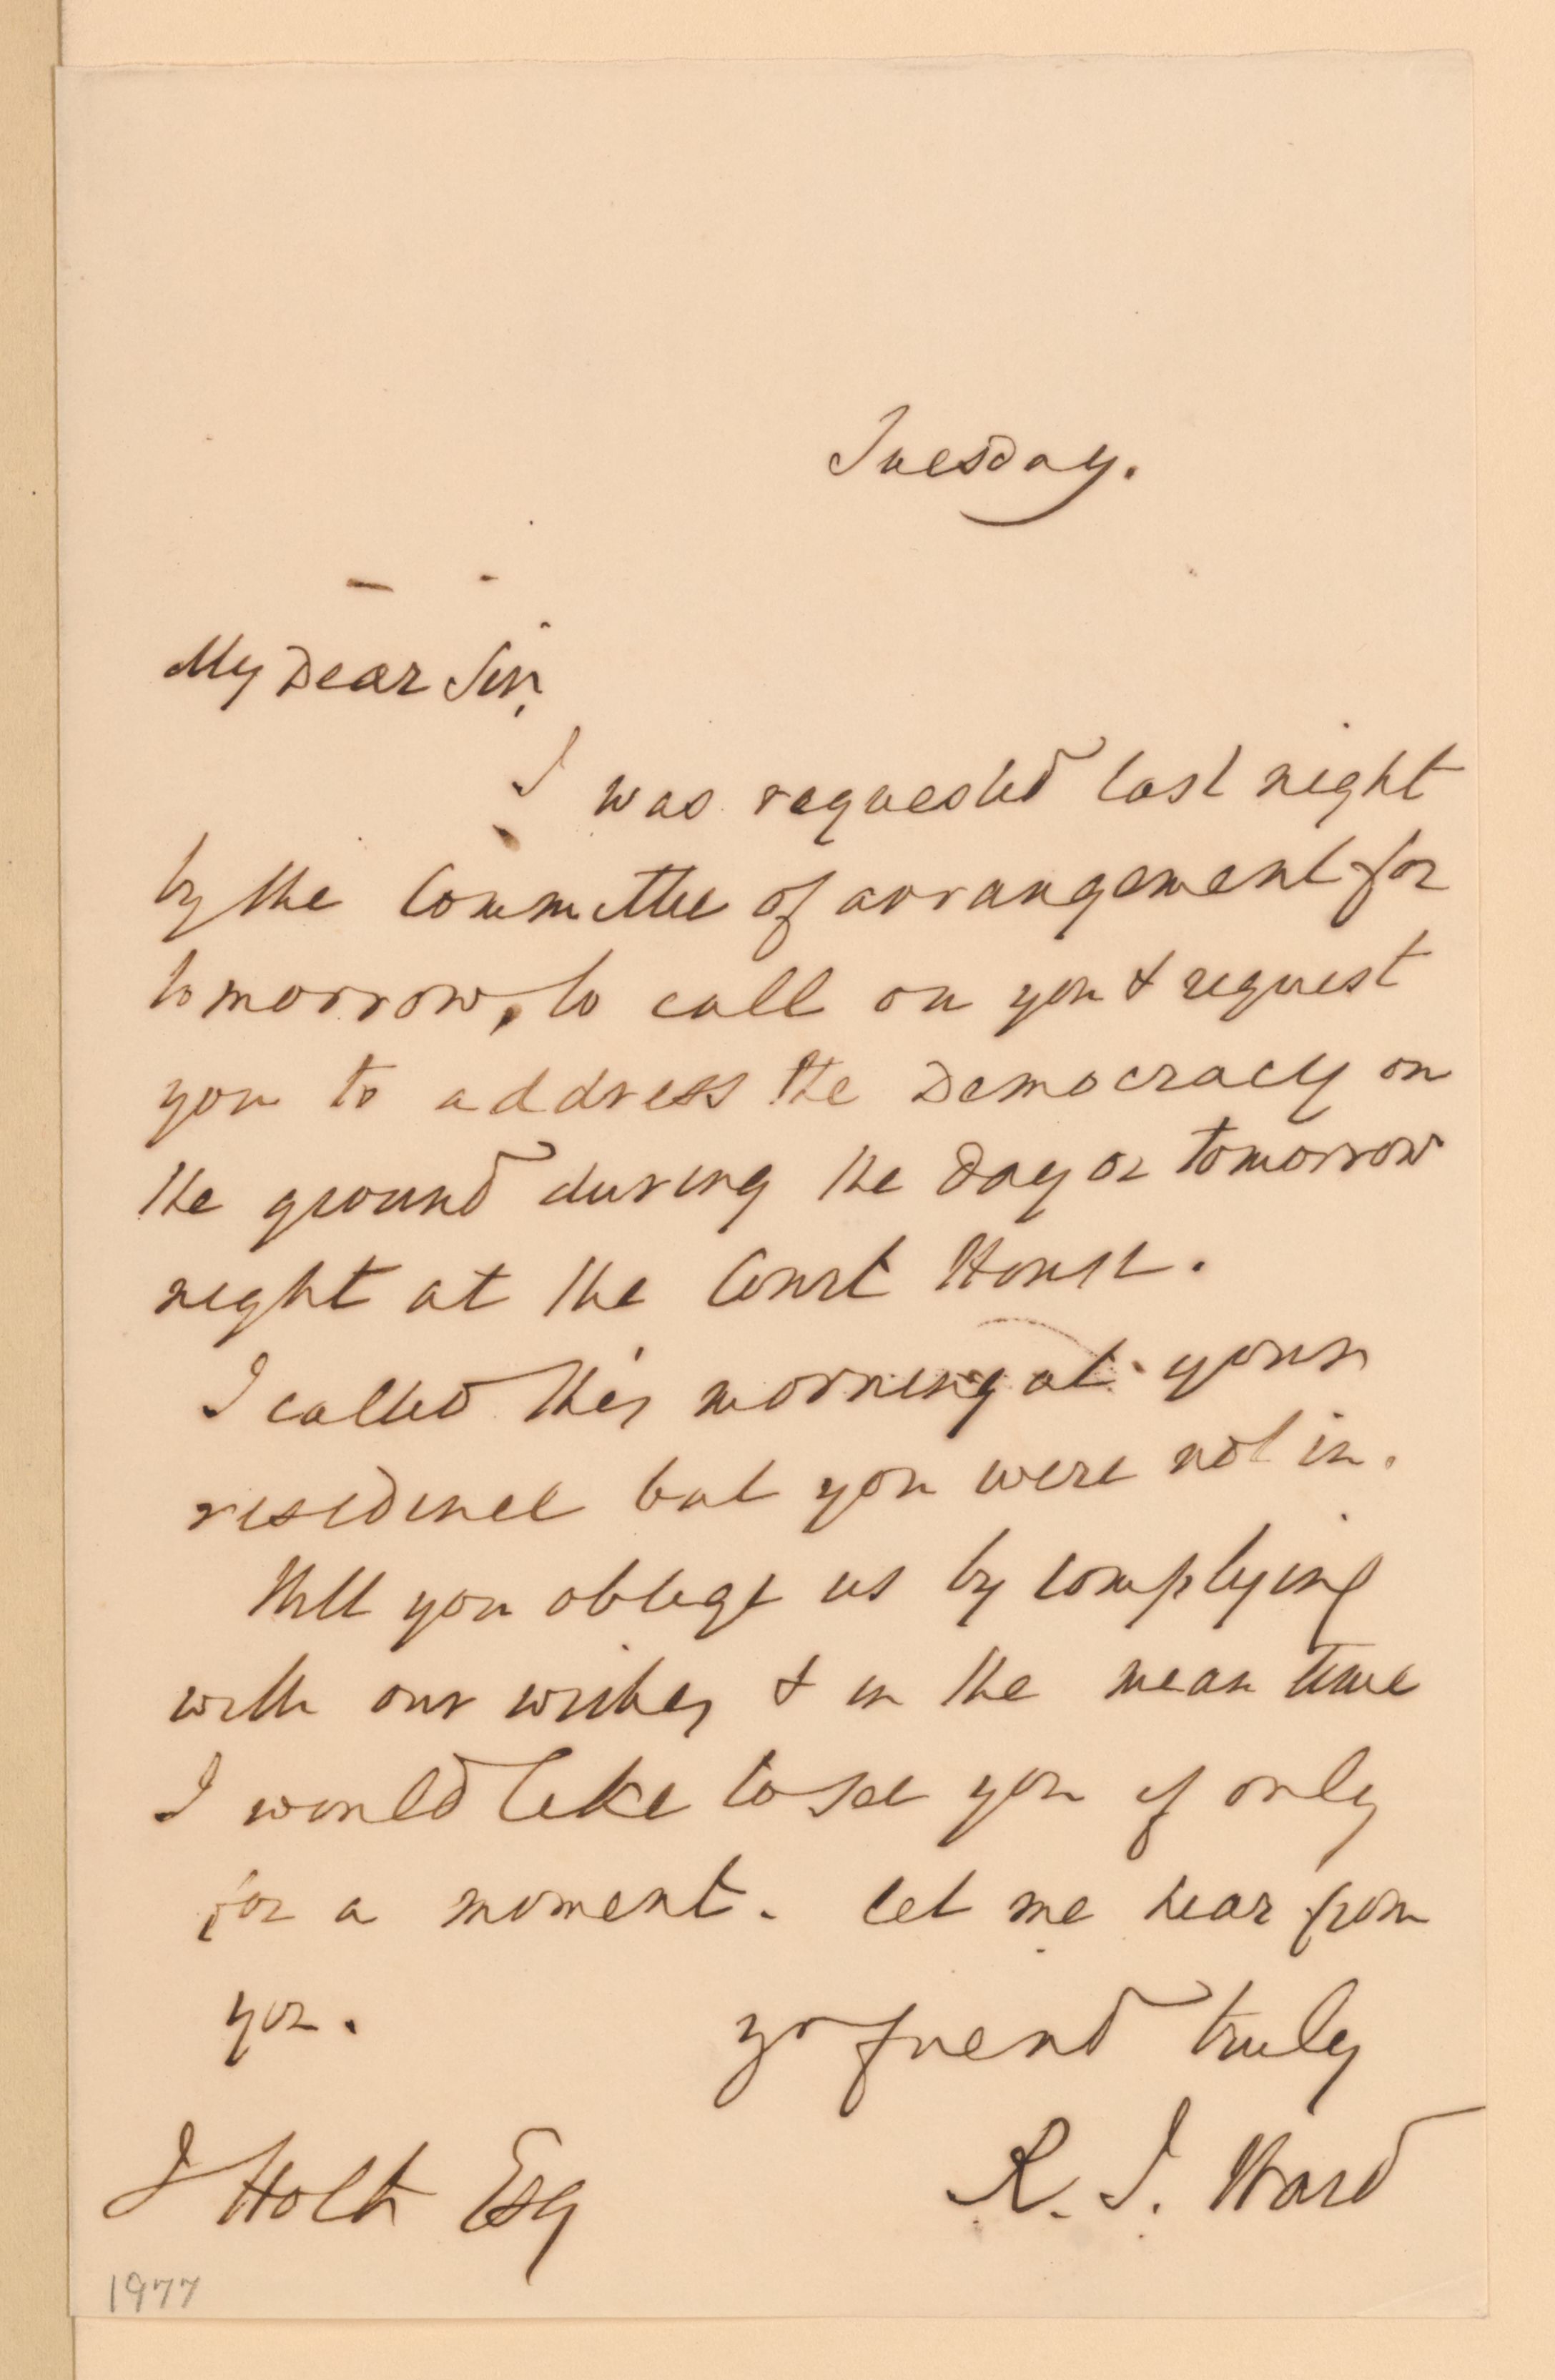 Tuesday.
My Dear Sir,
I was requested last night
by the Committee of arrangement for
tomorrow, to call on you & request
you to address the Democracy on
the ground during the day or tomorrow
night at the Court House.
I called this morning at your
residence but you were not in.
Will you oblige us by complying
with our wishes & in the mean time
I would like to see you if only
for a moment. let me hear from
you.
yr friend truly
R. J. Ward
J Holt Esq
1977